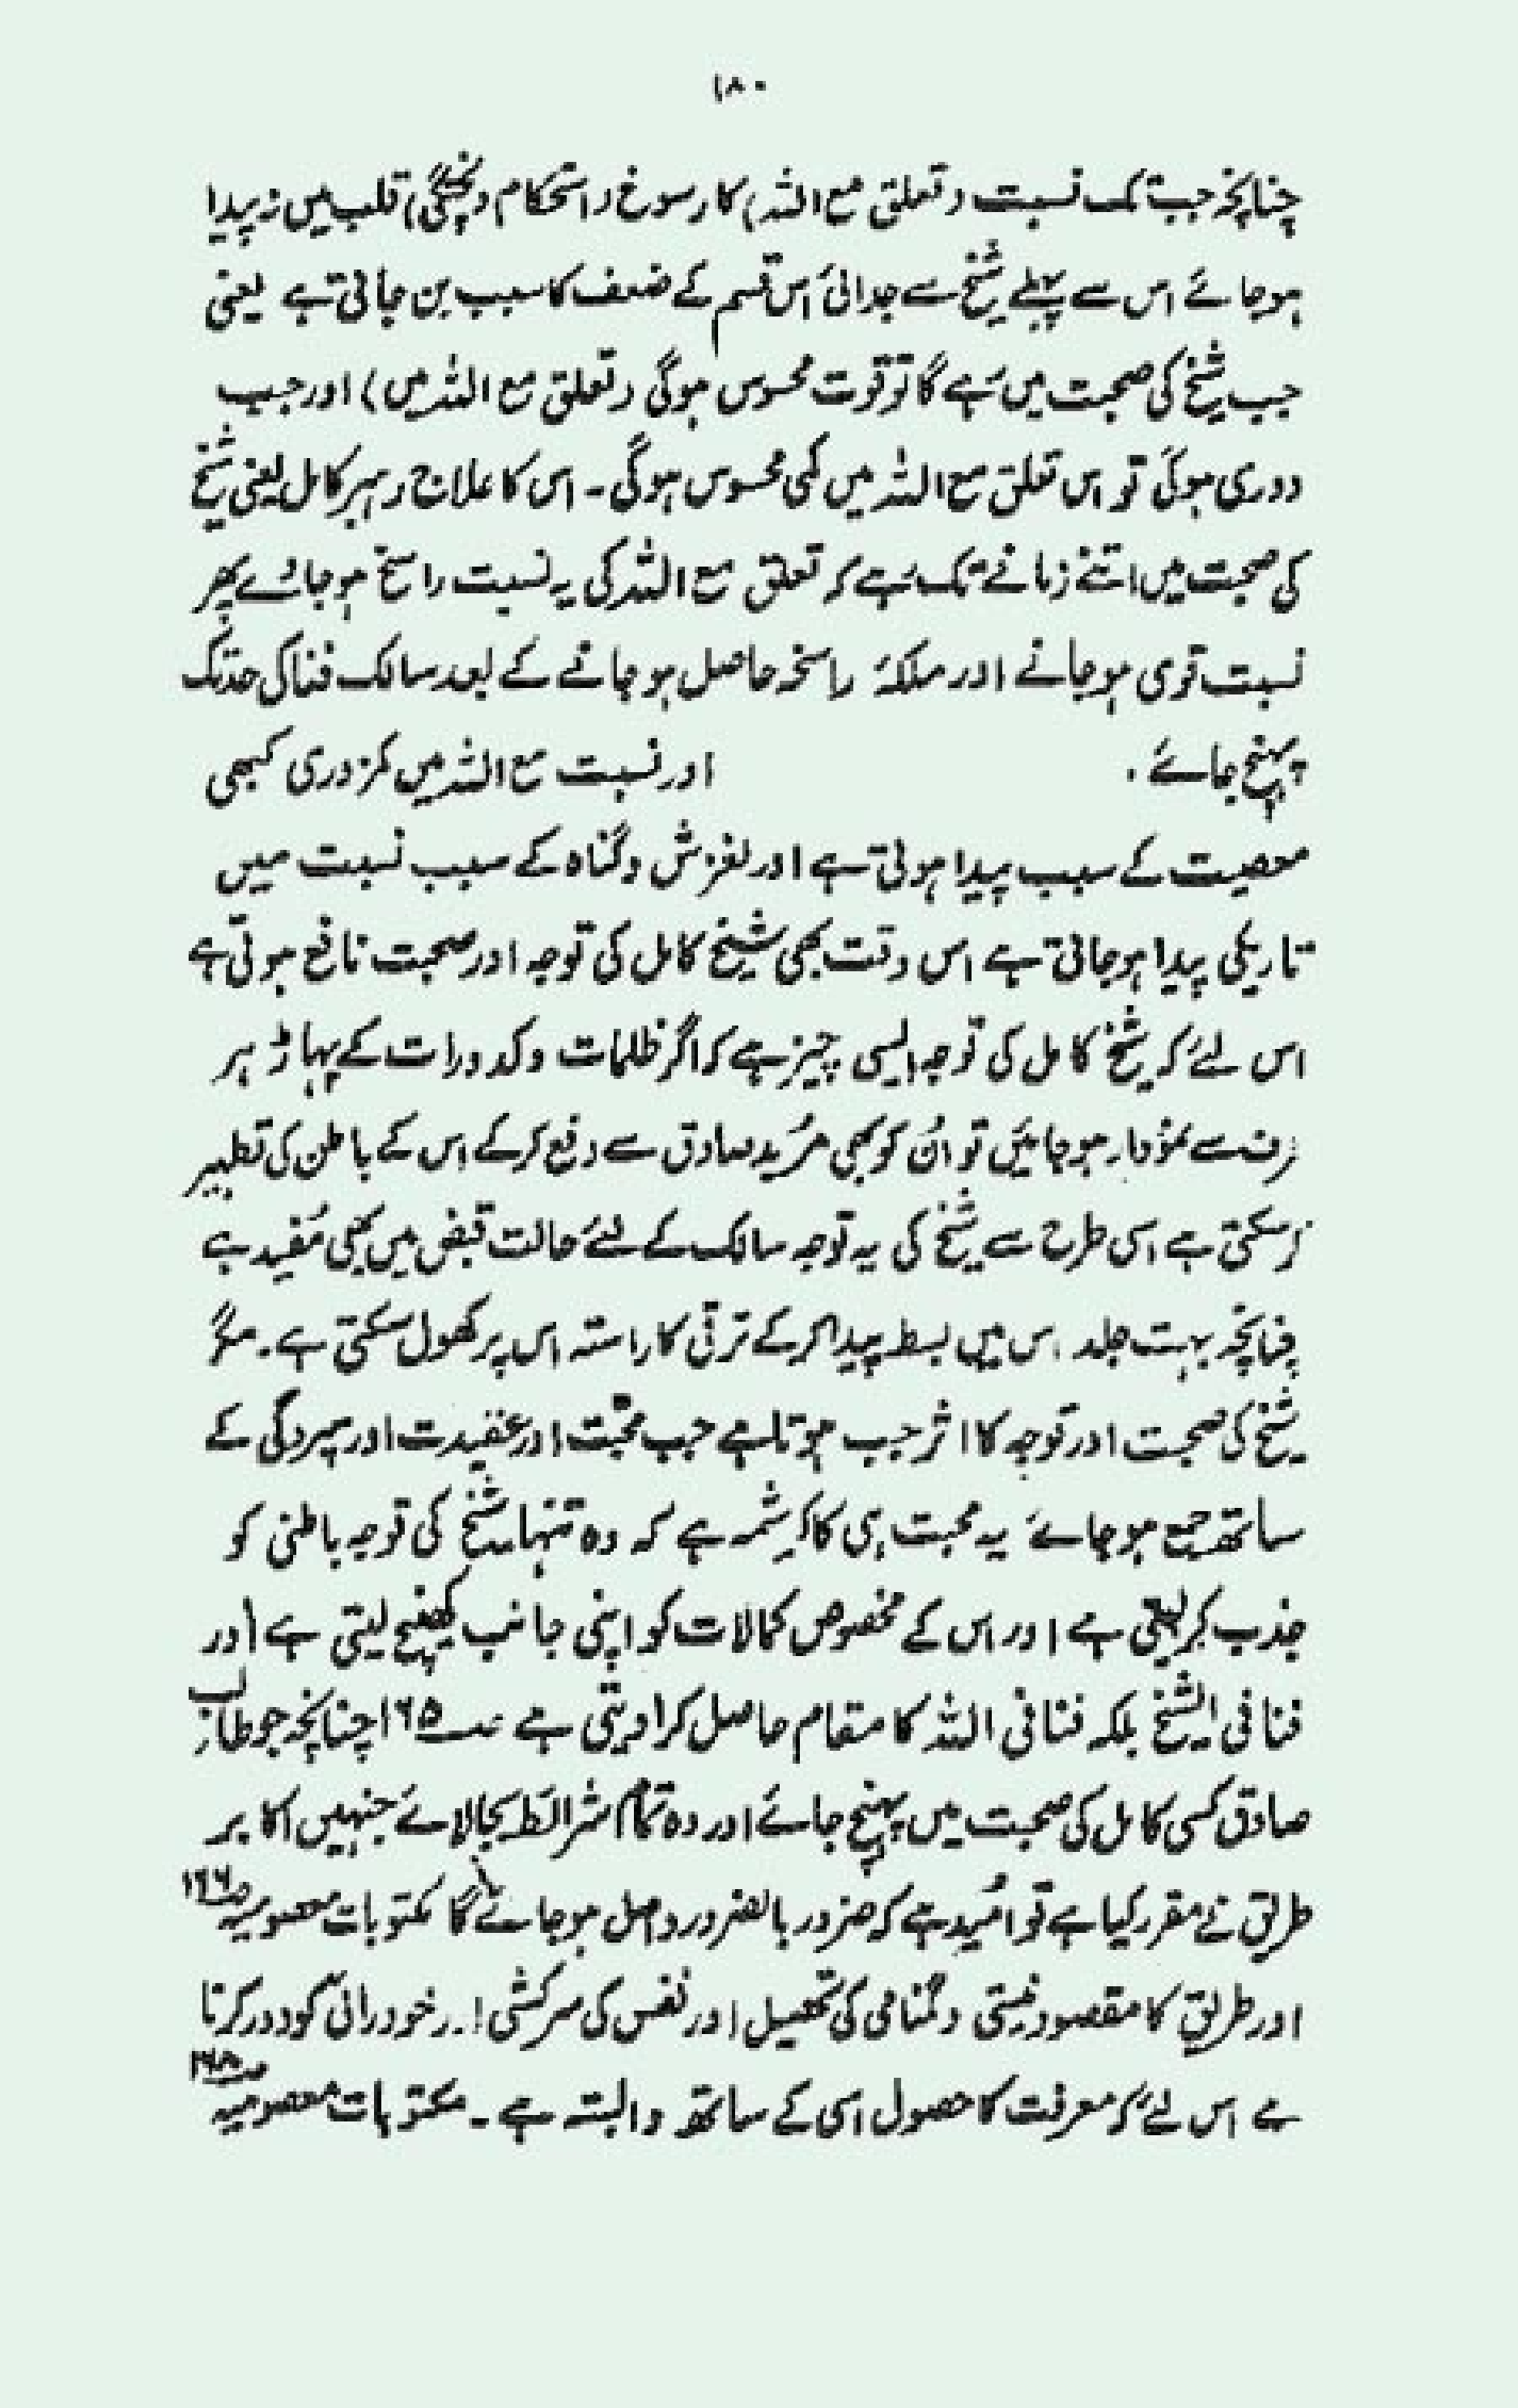 ۱۸۰
چنانچہ جب تک نسبت (تعلق مع اللہ) کا رسوخ (استحکام و پختگی) قلب میں نہ پیدا
ہو جائے اس سے پہلے شیخ سے جدائی اس قسم کے ضعف کا سبب بن جاتی ہے یعنی
جب شیخ کی صحبت میں رہے گا تو قوت محسوس ہوگی (تعلق مع اللہ میں) اور جب
دوری ہوگی تو اس تعلق مع اللہ میں کمی محسوس ہوگی۔ اس کا علاج رہبر کامل یعنی شیخ
کی صحبت میں اتنے زمانے تک رہے کہ تعلق مع اللہ کی یہ نسبت راسخ ہو جائے پھر
نسبت قوی ہو جانے اور ملکۂ راسخہ حاصل ہو جانے کے بعد سالک فنا کی حد تک
پہنچ جائے۔ اور نسبت مع اللہ میں کمزوری کبھی
معصیت کے سبب پیدا ہوتی ہے اور لغزش و گناہ کے سبب نسبت میں
تاریکی پیدا ہو جاتی ہے اس وقت بھی شیخ کامل کی توجہ اور صحبت نافع ہوتی ہے
اس لئے کہ شیخ کامل کی توجہ ایسی چیز ہے کہ اگر ظلمات و کدورات کے پہاڑ ہر
طرف سے نمودار ہو جائیں تو اُن کو بھی مُرید صادق سے دفع کر کے اس کے باطن کی تطہیر
کر سکتی ہے اسی طرح سے شیخ کی یہ توجہ سالک کے لئے حالت قبض میں بھی مُفید ہے
چنانچہ بہت جلد اس میں بسط پیدا کر کے ترقی کا راستہ اس پر کھول سکتی ہے۔ مگر
شیخ کی صحبت اور توجہ کا اثر جب ہوتا ہے جب محبّت اور عقیدت اور سپردگی کے
ساتھ جمع ہو جائے یہ محبت ہی کا کرِشمہ ہے کہ وہ تنہا شیخ کی توجہ باطنی کو
جذب کر لیتی ہے اور اس کے مخصوص کمالات کو اپنی جانب کھینچ لیتی ہے اور
فنا فی الشیخ بلکہ فنا فی اللہ کا مقام حاصل کرا دیتی ہے ص۱۶۵ چنانچہ جو طالب
صادق کسی کامل کی صحبت میں پہنچ جائے اور وہ تمام شرائط بجا لائے جنہیں اکابر
طریق نے مقرر کیا ہے تو اُمید ہے کہ ضرور بالضرور واصل ہو جائے گا مکتوبات معصومیہ ص۱۶۶
اور طریق کا مقصود نیستی و گمنامی کی تحصیل اور نفس کی سرکشی اور خود رائی کو دور کرنا
ہے اس لئے کہ معرفت کا حصول اسی کے ساتھ وابستہ ہے۔ مکتوبات معصومیہ